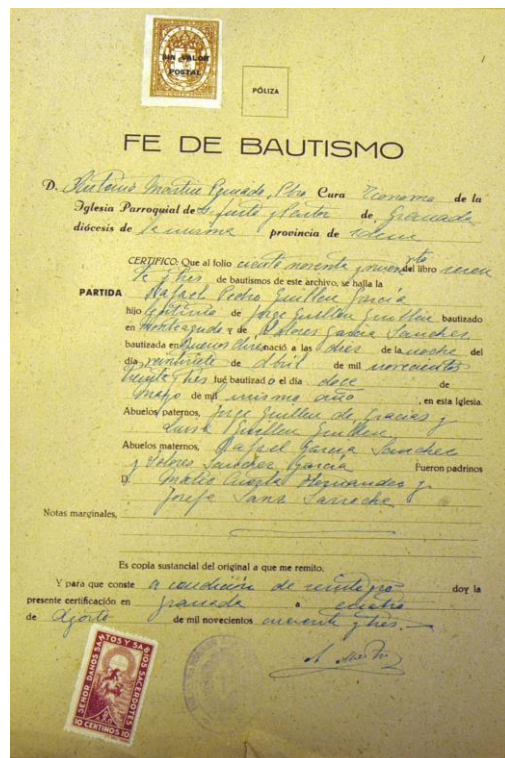 SIN VALOR
POSTAL
PÓLIZA
FE DE BAUTISMO
D. Antonio Martín Pbro Cura Ecónomo de la
Iglesia Parroquial de S. Justo y Pastor de Granada
diócesis de la misma provincia de idem
CERTIFICO: Que al folio ciento noventa y nueve vto del libro sesen
ta y tres de bautismos de este archivo, se halla la
PARTIDA
Rafael Pedro Guillen García
hijo legítimo de Jorge Guillen Guillen bautizado
en Monteagudo y de Dolores García Sanchez
bautizada en Buenos Aires nació a las diez de la noche del
día veintisiete de Abril de mil novecientos
veinte y tres fué bautizado o el día doce de
mayo de mil mismo año, en esta Iglesia.
Abuelos paternos, Jorge Guillen de Gracias y
Luisa Guillen Guillen
Abuelos maternos, Rafael García Sanchez
y Dolores Sanchez García Fueron padrinos
D. Hernandez y
Josefa Sanz
Notas marginales,
Es copia sustancial del original a que me remito.
Y para que conste a condición de reintegro doy la
presente certificación en Granada a cuatro
de Agosto de mil novecientos cuarenta y tres.
SEÑOR DANOS SANTOS Y SABIOS SACERDOTES
10 CENTIMOS 10